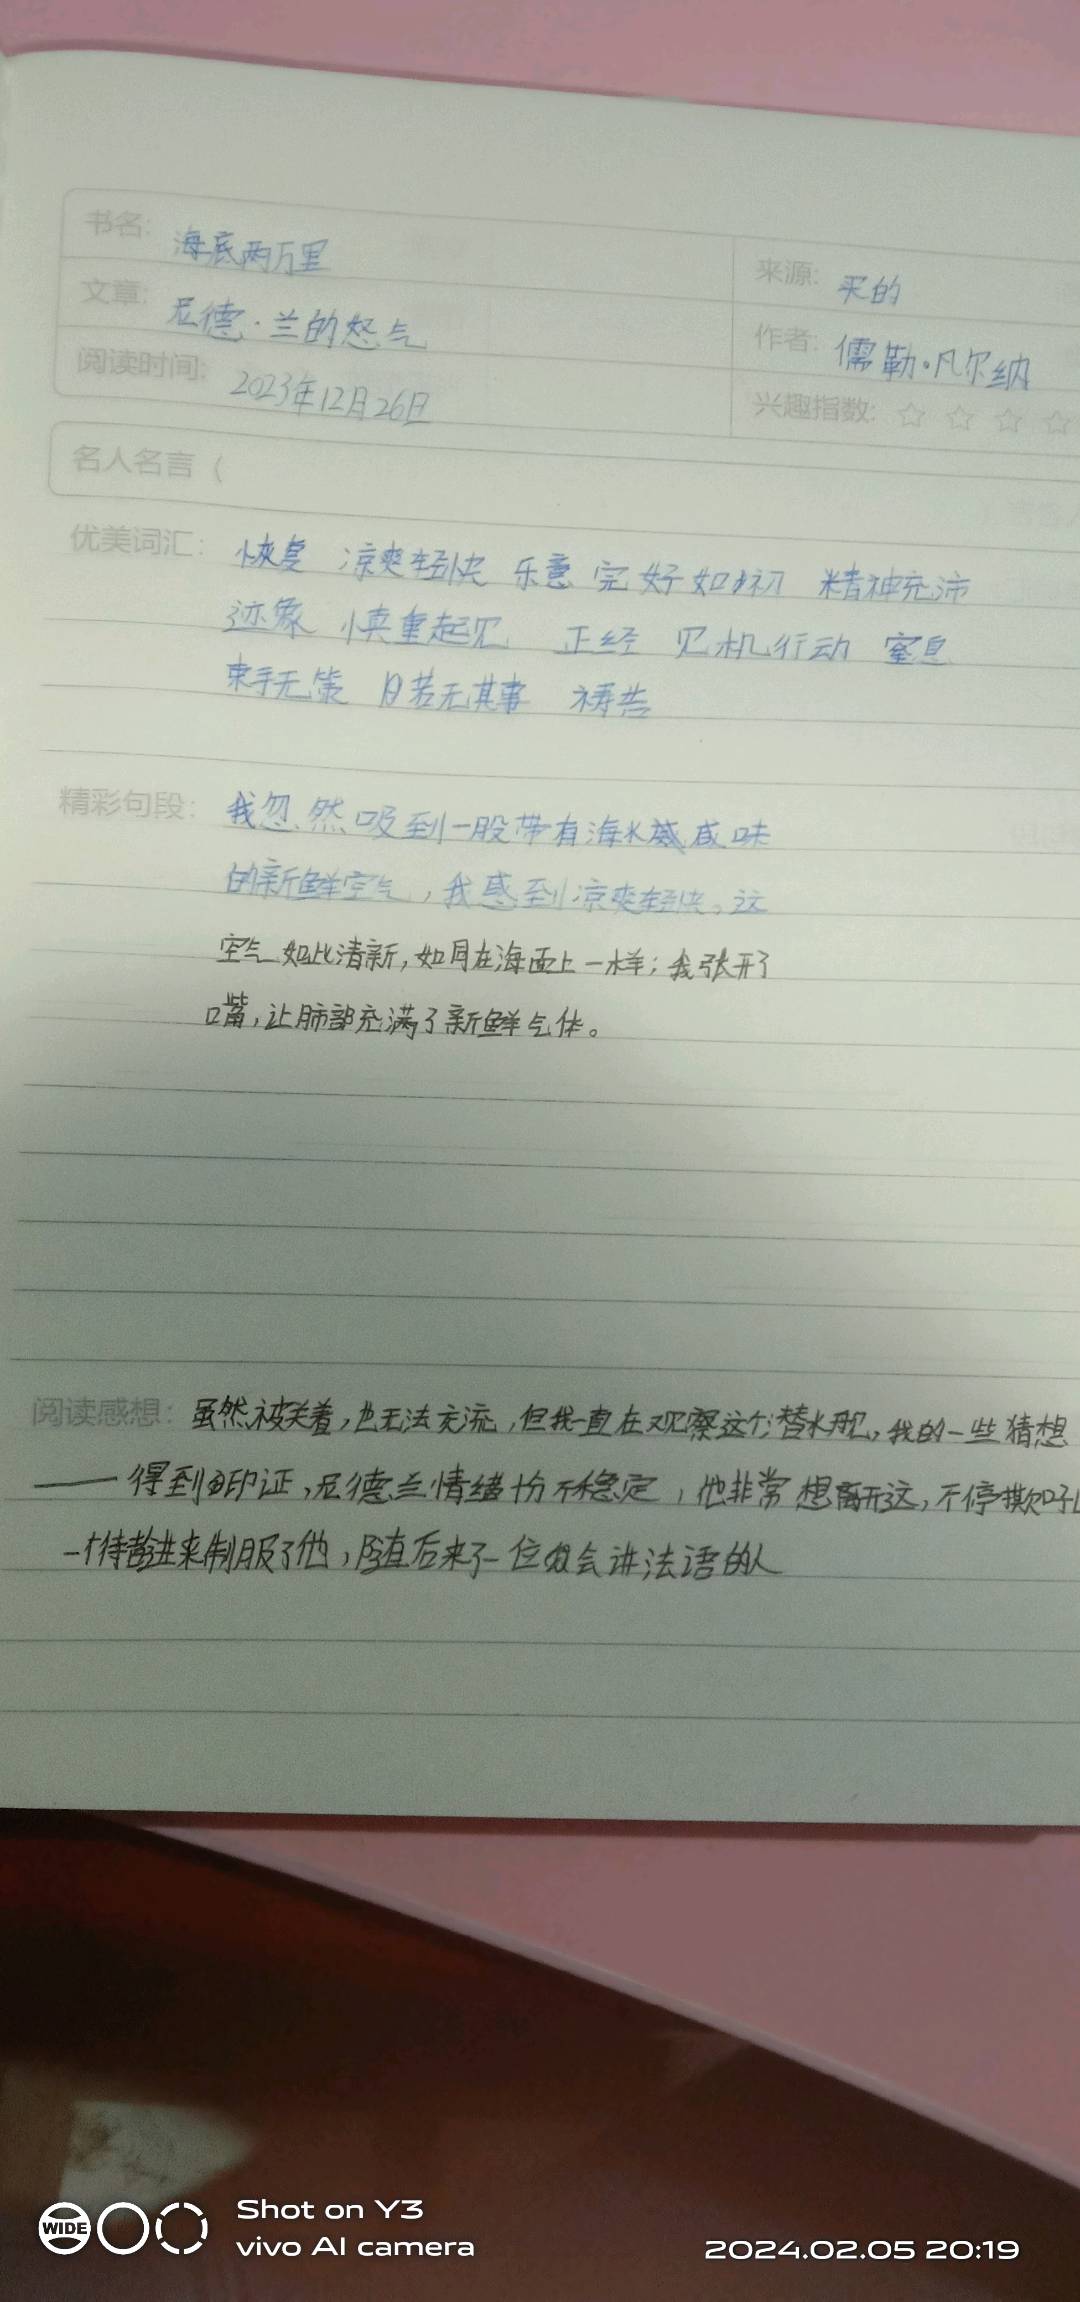 书名: 海底两万里
来源: 买的
文章: 尼德·兰的怒气
作者: 儒勒·凡尔纳
阅读时间: 2023年12月26日
兴趣指数: ☆ ☆ ☆ ☆
名人名言(
优美词汇: 恢复 凉爽轻快 乐意 完好如初 精神充沛
迹象 慎重起见 正经 见机行动 窒息
束手无策 日若无其事 祷告
精彩句段: 我忽然吸到一股带有海水咸味
的新鲜空气,我感到凉爽轻快。这
空气如此清新,如同在海面上一样;我张开了
口嘴,让肺部充满了新鲜气体。
阅读感想: 虽然被关着,也无法交流,但我一直在观察这个潜水艇,我的一些猜想
一一得到印证,尼德兰情绪十分不稳定,他非常想离开这,不停
进来制服了他,随后来了一位会讲法语的人
WIDE
Shot on Y3
vivo AI camera
2024.02.05 20:19